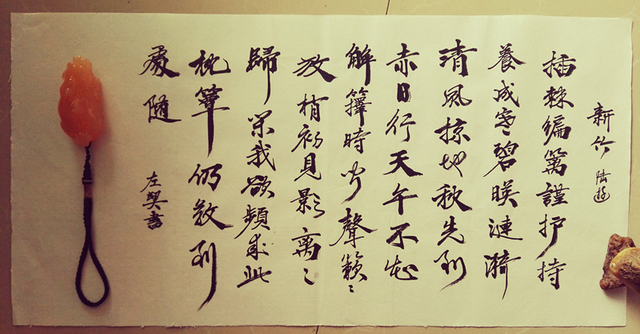 新竹 陆游
插棘編篱謹护持
養成寒碧暎漣漪
清風掠地秋先到
赤日行天午不知
解籜時闻聲簌々
放梢初見影离々
歸闲我欲頻来此
枕簟仍教到
處随
左 書